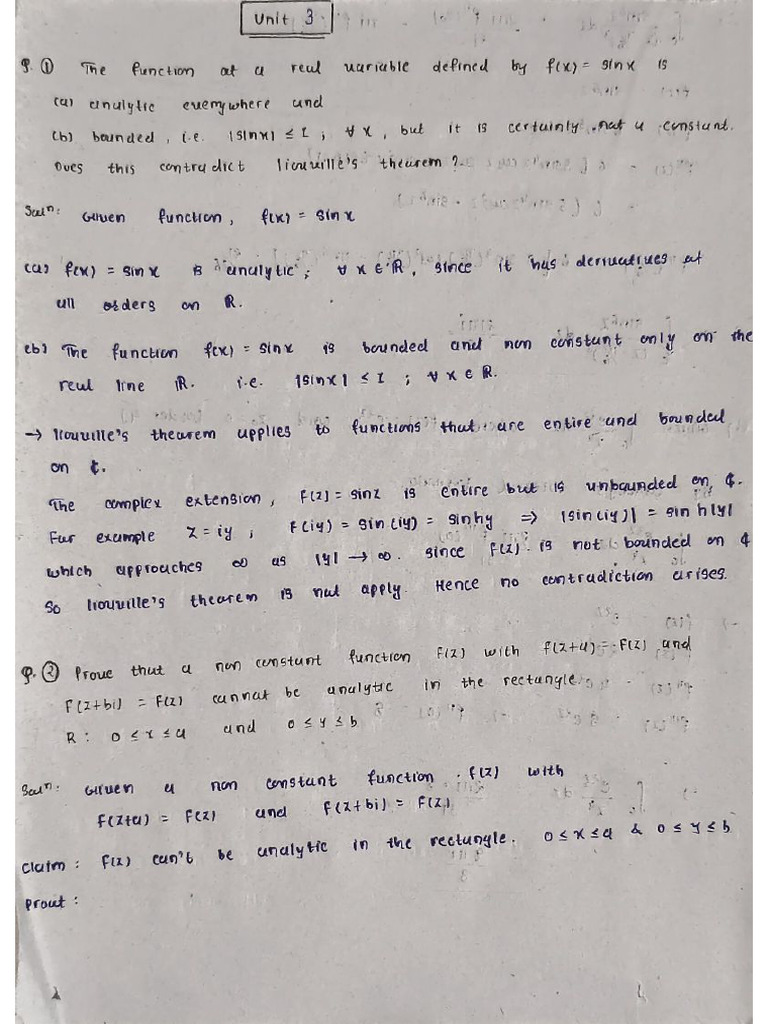 Unit 3
Q. ① The function of a real variable defined by f(x) = sinx is
(a) analytic everywhere and
(b) bounded, i.e. |sinx| ≤ 1 ; ∀ x, but it is certainly not a constant.
Does this contradict liouville's theorem?
Soln: Given function, f(x) = sinx
(a) f(x) = sinx is analytic ; ∀ x ∈ ℝ, since it has derivatives of
all orders on ℝ.
(b) The function f(x) = sinx is bounded and non constant only on the
real line ℝ. i.e. |sinx| ≤ 1 ; ∀ x ∈ ℝ.
→ liouville's theorem applies to functions that are entire and bounded
on ℂ.
The complex extension, f(z) = sinz is entire but is unbounded on ℂ.
For example z = iy ; f(iy) = sin(iy) = sinhy ⇒ |sin(iy)| = sin h|y|
which approaches ∞ as |y| → ∞. since f(z) is not bounded on ℂ
So liouville's theorem is not apply. Hence no contradiction arises.
Q. ② Prove that a non constant function f(z) with f(z+a) = f(z) and
f(z+bi) = f(z) cannot be analytic in the rectangle.
R : 0 ≤ x ≤ a and 0 ≤ y ≤ b
Soln: Given a non constant function f(z) with
f(z+a) = f(z) and f(z+bi) = f(z)
Claim : f(z) can't be analytic in the rectangle. 0 ≤ x ≤ a & 0 ≤ y ≤ b
Proof :